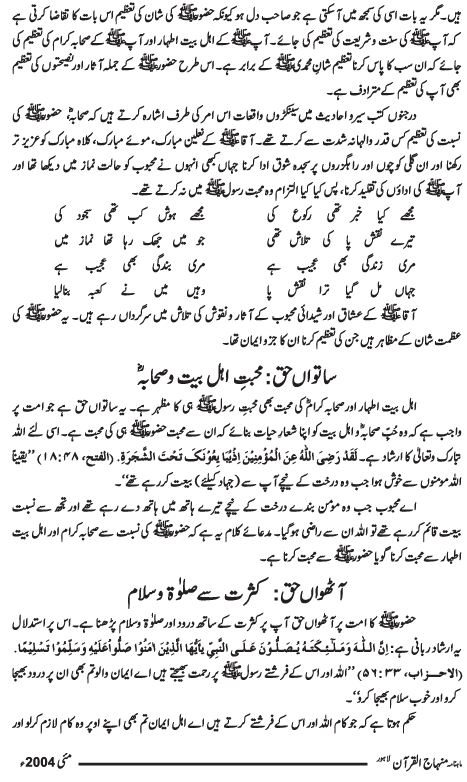 ہیں۔ مگر یہ بات اسی کی سمجھ میں آسکتی ہے جو صاحب دل ہو کیونکہ حضور ﷺ کی شان کی تعظیم اس بات کا تقاضا کرتی ہے
کہ آپ ﷺ کی سنت و شریعت کی تعظیم کی جائے۔ آپ ﷺ کے اہل بیت اطہار اور آپ ﷺ کے صحابہ کرام کی تعظیم کی
جائے کہ ان سب کا پاس کرنا تعظیم شان محمدی ﷺ کے برابر ہے۔ اس طرح حضور ﷺ کے جملہ آثار اور نصیحتوں کی تعظیم
بھی آپ کی تعظیم کے مترادف ہے۔
درجنوں کتب سیر و احادیث میں سینکڑوں واقعات اس امر کی طرف اشارہ کرتے ہیں کہ صحابہؓ، حضور ﷺ کی
نسبت کی تعظیم کس قدر والہانہ شدت سے کرتے تھے۔ آقا ﷺ کے نعلین مبارک، موئے مبارک، کلاہ مبارک کو عزیز تر
رکھنا اور ان گلی کوچوں اور راہگذروں پر سجدہ شوق ادا کرنا جہاں کبھی انہوں نے محبوب کو حالت نماز میں دیکھا تھا اور
آپ ﷺ کی اداؤں کی تقلید کرنا، پس کیا کیا التزام وہ محبت رسول ﷺ میں نہ کرتے تھے۔
مجھے کیا خبر تھی رکوع کی مجھے ہوش کب تھی سجود کی
تیرے نقش پا کی تلاش تھی جو میں جھک رہا تھا نماز میں
مری زندگی بھی عجیب ہے مری بندگی بھی عجیب ہے
جہاں مل گیا ترا نقش پا وہیں میں نے کعبہ بنالیا
آقا ﷺ کے عشاق اور شیدائی محبوب کے آثار و نقوش کی تلاش میں سرگرداں رہے ہیں۔ یہ حضور ﷺ کی
عظمت شان کے مظاہر ہیں جن کی تعظیم کرنا ان کا جزو ایمان تھا۔
ساتواں حق: محبتِ اہل بیت و صحابہؓ
اہل بیت اطہار اور صحابہ کرامؓ کی محبت بھی محبتِ رسول ﷺ ہی کا مظہر ہے۔ یہ ساتواں حق ہے جو امت پر
واجب ہے کہ وہ حُبِّ صحابہؓ و اہل بیت کو اپنا شعار حیات بنائے کہ ان سے محبت حضور ﷺ ہی کی محبت ہے۔ اسی لئے اللہ
تبارک وتعالیٰ کا ارشاد ہے۔ لَقَدْ رَضِیَ اللّٰهُ عَنِ الْمُؤْمِنِیْنَ اِذْیُبَا یِعُوْنَکَ تَحْتَ الشَّجَرَةِ. (الفتح، ۴۸:۱۸) ’’یقیناً
اللہ مومنوں سے خوش ہوا جب وہ درخت کے نیچے آپ سے (جہاد کیلئے) بیعت کر رہے تھے‘‘۔
اے محبوب جب وہ مؤمن بندے درخت کے نیچے تیرے ہاتھ میں ہاتھ دے رہے تھے اور تجھ سے نسبت
بیعت قائم کر رہے تھے تو اللہ ان سے راضی ہو گیا۔ مدعائے کلام یہ ہے کہ حضور ﷺ کی نسبت سے صحابہ کرام اور اہل بیت
اطہار سے محبت کرنا گویا حضور ﷺ سے محبت کرنا ہے۔
آٹھواں حق: کثرت سے صلوٰۃ و سلام
حضور ﷺ کا امت پر آٹھواں حق آپ پر کثرت کے ساتھ درود اور صلوٰۃ و سلام پڑھنا ہے۔ اس پر استدلال
یہ ارشاد ربانی ہے: اِنَّ اللّٰهَ وَمَلٰٓئِکَتَهٗ یُصَلُّوْنَ عَلَی النَّبِیِّ یٰٓاَیُّهَا الَّذِیْنَ اٰمَنُوْا صَلُّوْا عَلَیْهِ وَسَلِّمُوْا تَسْلِیْمًا.
(الاحزاب، ۳۳:۵۶) ’’اللہ اور اس کے فرشتے رسول ﷺ پر رحمت بھیجتے ہیں اے ایمان والو تم بھی ان پر درود بھیجا
کرو اور خوب سلام بھیجا کرو‘‘۔
حکم ہوتا ہے کہ جو کام اللہ اور اس کے فرشتے کرتے ہیں اے اہل ایمان تم بھی اپنے اوپر وہ کام لازم کر لو اور
ماہنامہ منہاج القرآن لاہور مئی 2004ء